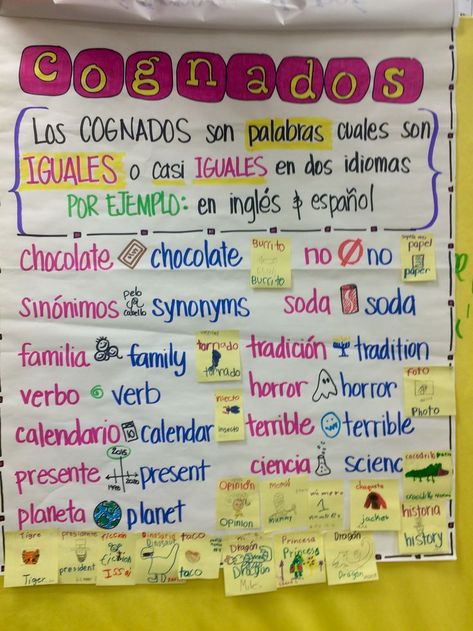 Cognados
Los COGNADOS son palabras cuales son
IGUALES o casi IGUALES en dos idiomas
POR EJEMPLO: en inglés & español
chocolate chocolate
Burrito
Burrito
no no
papel
paper
sinónimos pelo cabello synonyms
soda soda
familia family
tornado
tornado
tradición tradition
verbo verb
horror horror
foto
Photo
calendario 10 calendar
insecto
insecto
terrible terrible
presente 2015 present
ciencia scienc
cocodrilo
crocodile
planeta planet
Opinión
Opinion
Mamá
mummy
número
1
number
chaqueta
Jacket
historia
history
Tigre
Tiger
presidente
president
ficción
Dinosaurio
Dinosaur
taco
taco
Dragón
Dragon
Princesa
Princess
Dragón
Dragon